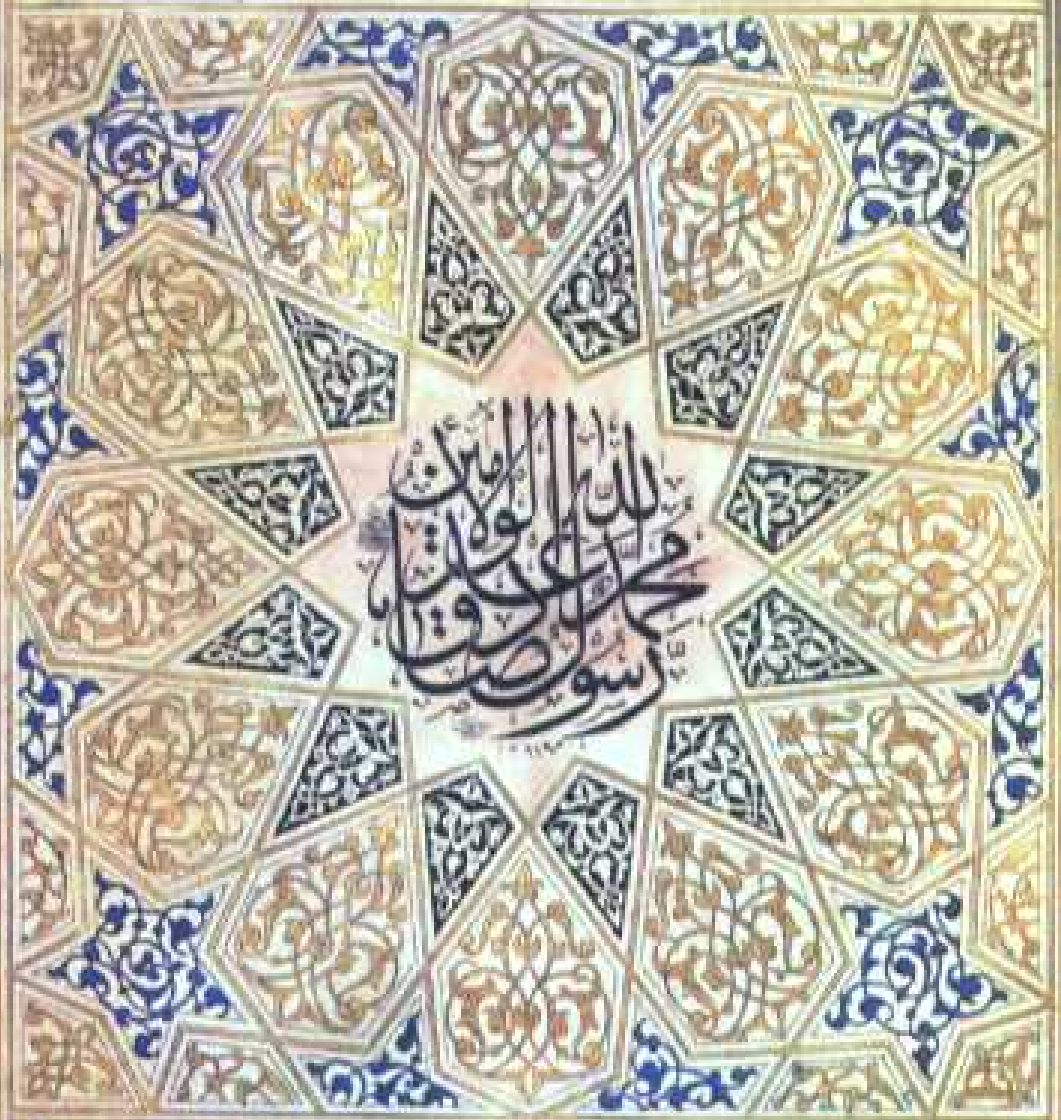 محمد رسول الله صادق الوعد الامين